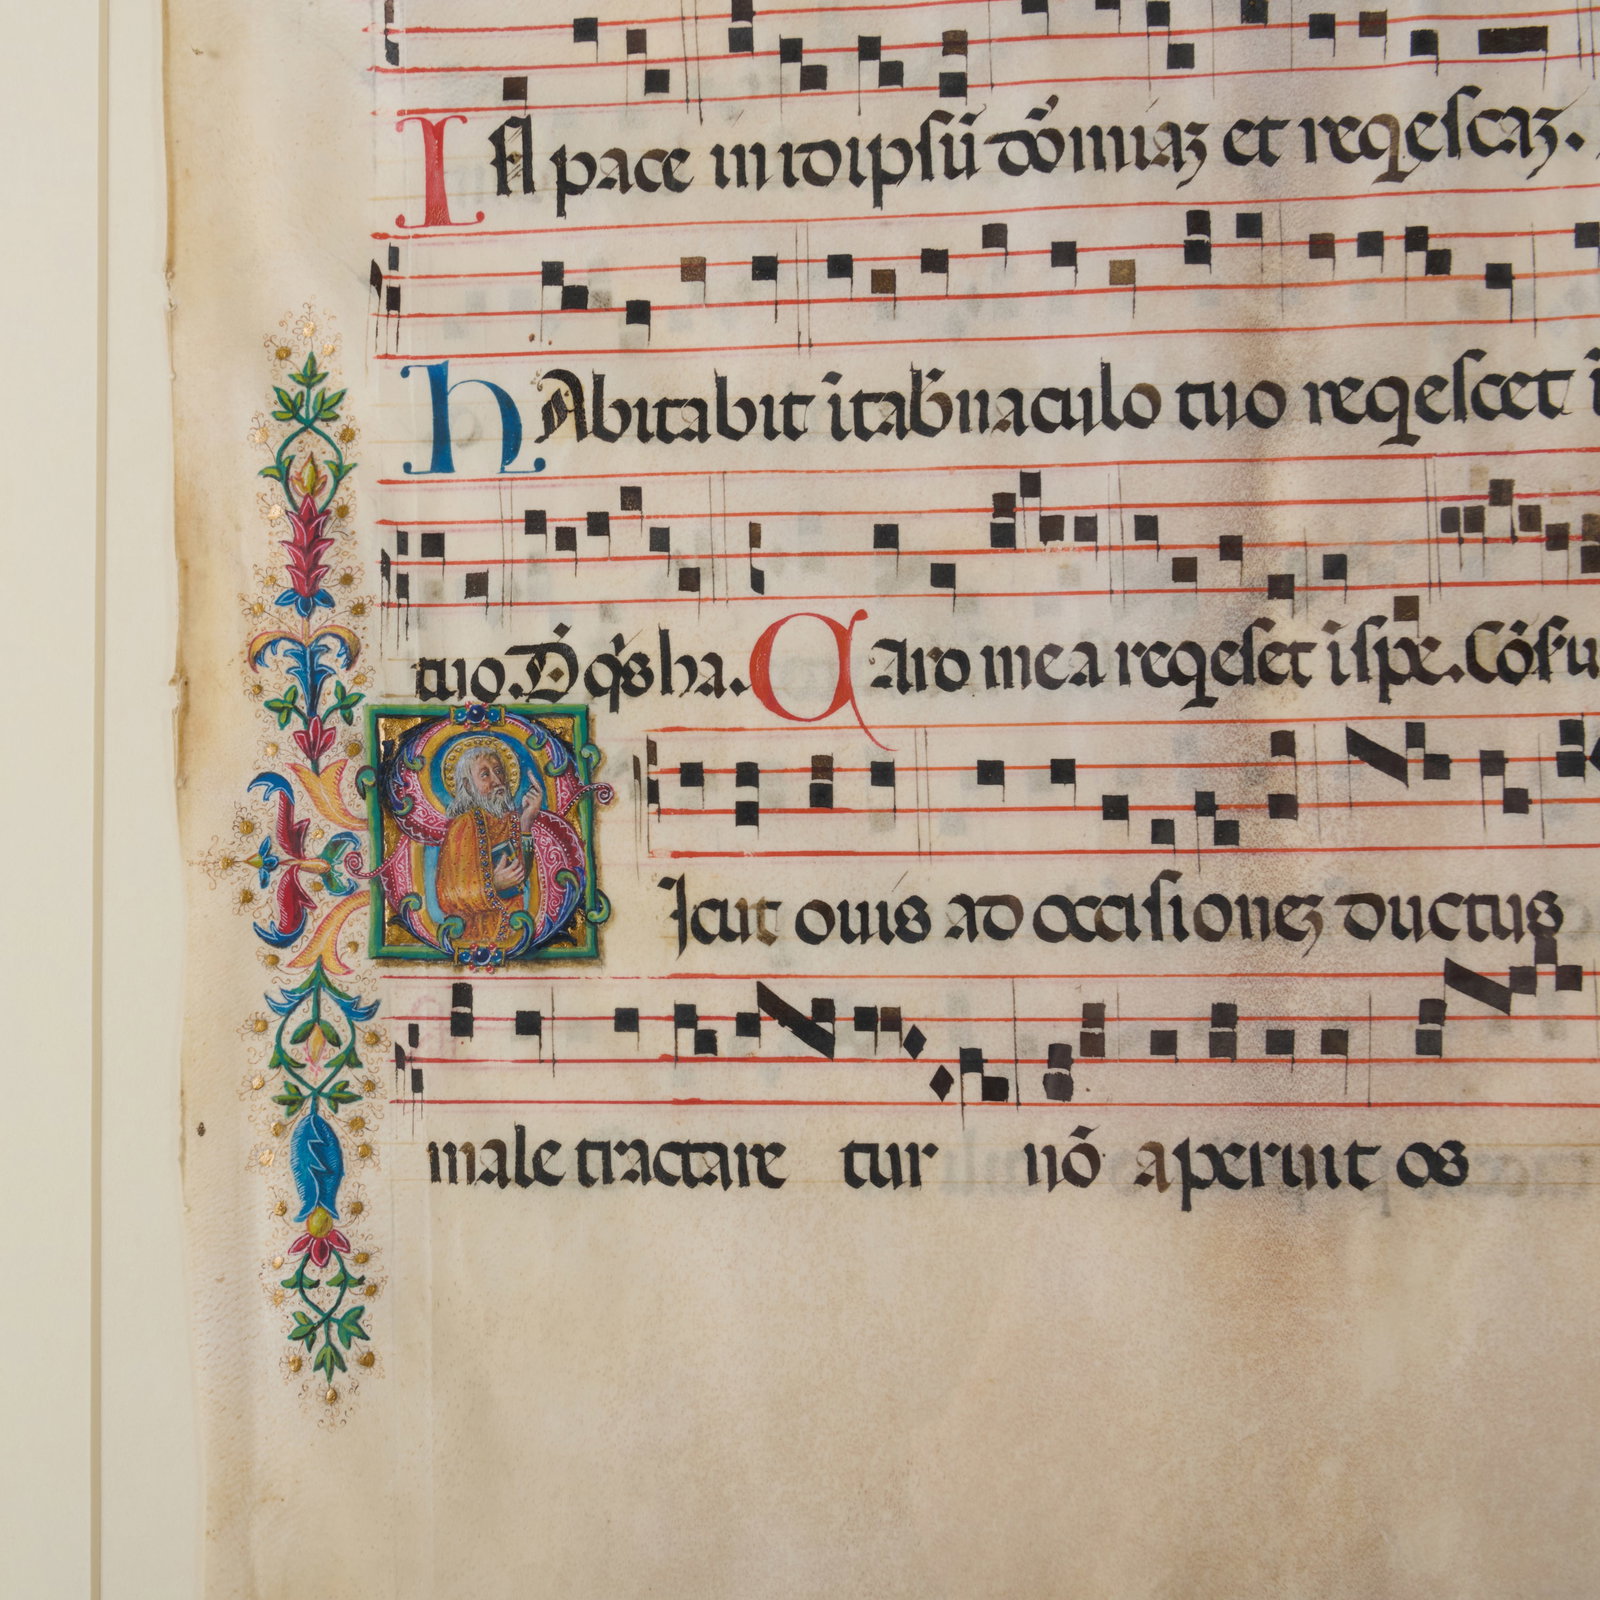 IN pace in idipsū dōmiaʒ et reqescaʒ.
hAbitabit ī tab̄naculo tuo reqescet ī
tuo. D q̄s ha. CAro mea reqeset ī spe. Cōfu
SIcut ouis ad occisioneʒ ductus
male tractare tur nō aperuit os